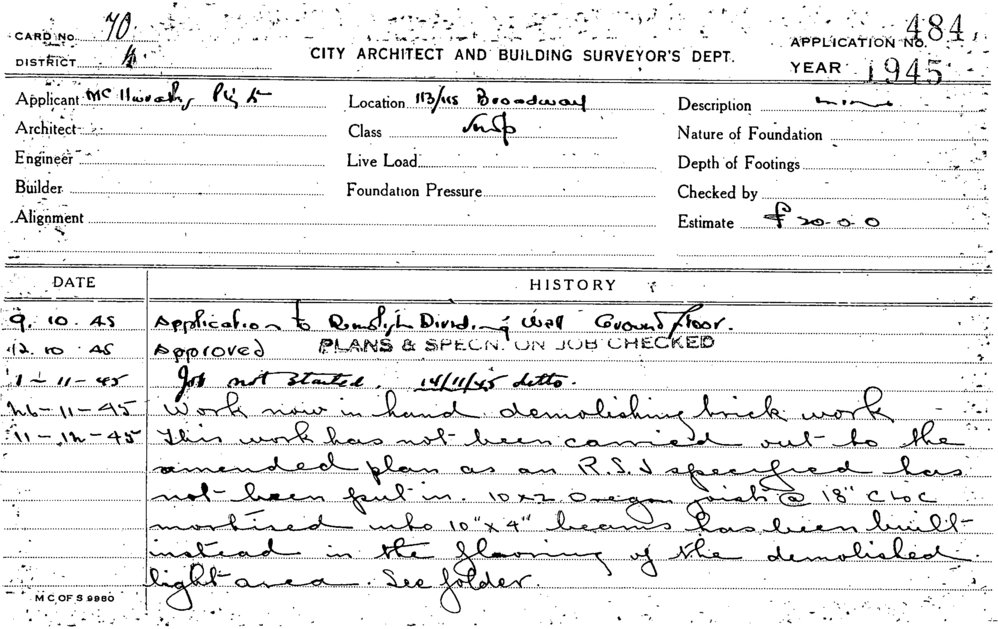 CARD No. 70
DISTRICT
CITY ARCHITECT AND BUILDING SURVEYOR'S DEPT.
APPLICATION No. 484
YEAR 1945
Applicant Pty
Location 113/115 Broadway
Description
Architect
Class
Nature of Foundation
Engineer
Live Load
Depth of Footings
Builder
Foundation Pressure
Checked by
Alignment
Estimate £ 20-0-0
DATE
HISTORY
9.10.45 Application to Demolish Dividing Wall Ground floor.
12.10.45 Approved PLANS & SPECN. ON JOB CHECKED
1-11-45 Job not started. 14/11/45 ditto.
26-11-45 Work now in hand demolishing brick work
11-12-45 This work has not been carried out to the
amended plan as an R.S.J specified has
not been put in. 10x2 Oregon joists @ 18" C to C
mortised into 10" x 4" beams has been built
instead in the flooring of the demolished
light area. See folder.
M C OF S 9980